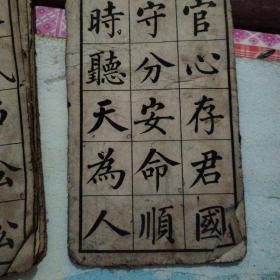 官心存君國
守分安命順
時聽天為人